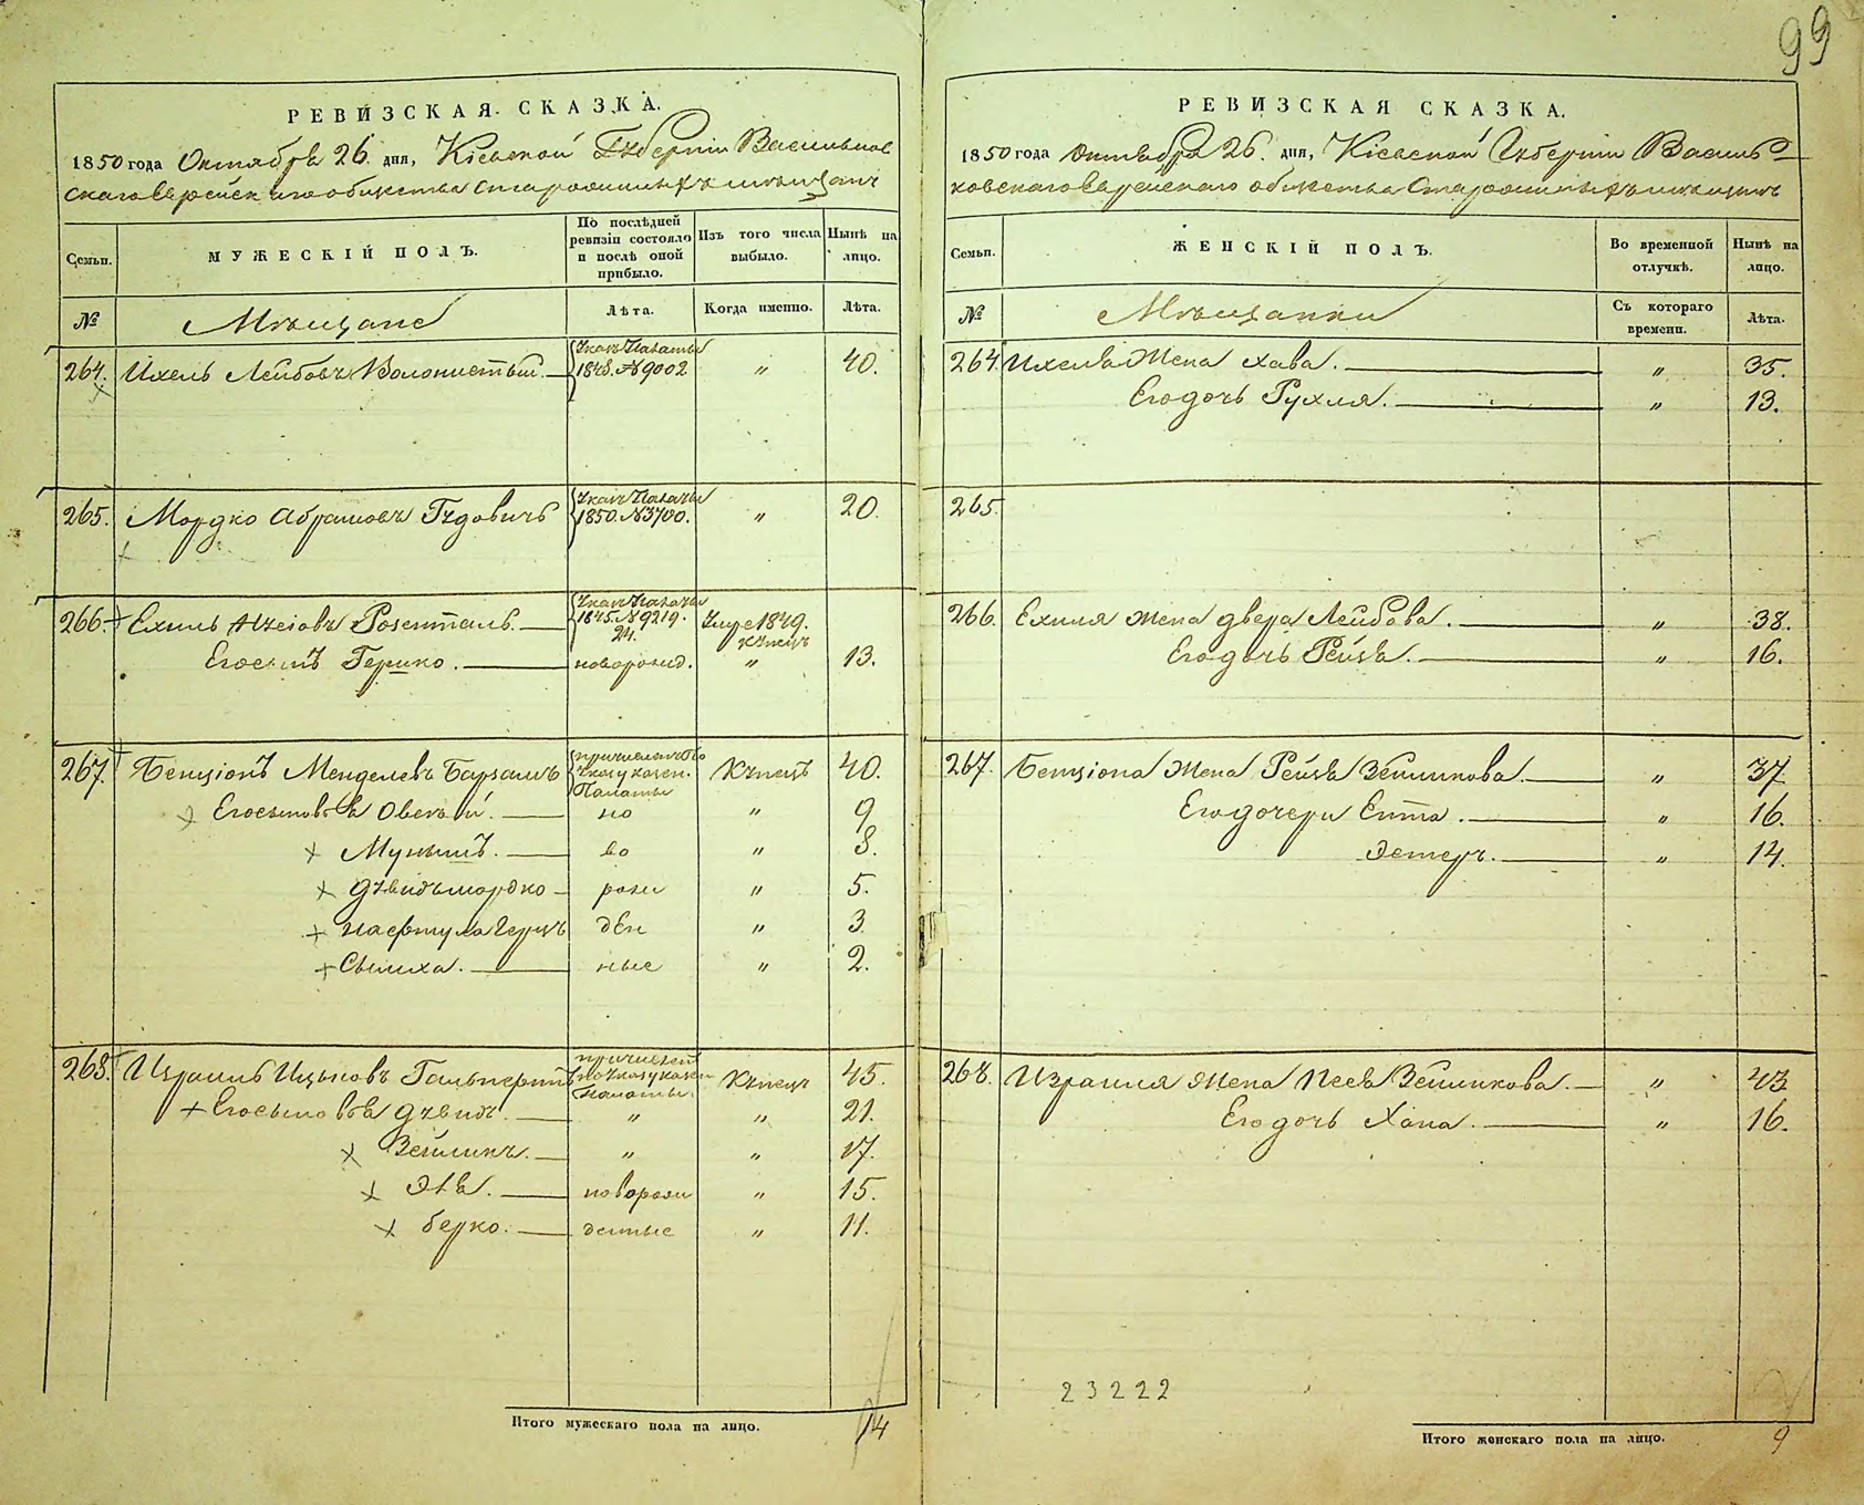 99
РЕВИЗСКАЯ СКАЗКА.
1850 года Октября 26. дня, Кіевской Губерніи Васильков
скаго Еврейскаго общества старожилыхъ мѣщанъ
Семьи.
МУЖЕСКІЙ ПОЛЪ.
По послѣдней ревизіи состояло и послѣ оной прибыло.
Изъ того числа выбыло.
Нынѣ на лицо.
№
Мѣщане
Лѣта.
Когда именно.
Лѣта.
264. Ихель Лейбовъ 1848. №9002 " 40.
265. Мордко Абрамовъ Гудовичъ 1850. №3700. " 20.
266. Ехиль Розенталь. 1845. №9219. 24. Умре 1849. купецъ
Его сынъ Гершко. новорожд. " 13.
267. Бенціонъ Менделевъ причисленъ по указу казен. Палаты Купецъ 40.
Его сыновья но " 9
во " 8.
Дувидъ Мордко рож " 5.
Нафтула Герцъ ден " 3.
ные " 2.
268. Израиль Ицковъ Гальперинъ причислен по указу казен Палаты. Купецъ 45.
Его сыновья Дувидъ. " " 21.
Вейликъ. " " 17.
новорож " 15.
Берко. денные " 11.
Итого мужескаго пола на лицо. 14
РЕВИЗСКАЯ СКАЗКА.
1850 года Октября 26. дня, Кіевской Губерніи Василь
ковскаго Еврейскаго общества Старожилыхъ мѣщанъ
Семьи.
ЖЕНСКІЙ ПОЛЪ.
Во временной отлучкѣ.
Нынѣ на лицо.
№
Мѣщанки
Съ котораго времени.
Лѣта.
264. Ихеля Жена Хава. " 35.
Его дочь Рухля. " 13.
265.
266. Ехиля жена Двера Лейбова. " 38.
Его дочь Рейзя. " 16.
267. Бенціона Жена Рейзя Вейликова. " 37
Его дочери Ента. " 16.
Эстеръ. " 14.
268. Израиля жена Песя Вейликова. " 43
Его дочь Хана. " 16.
23222
Итого женскаго пола на лицо. 9